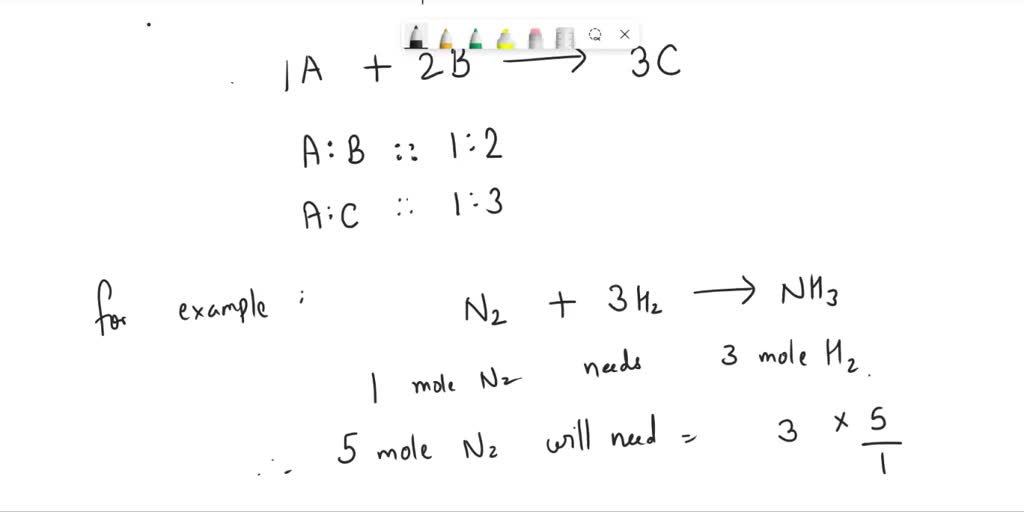 1A + 2B ⟶ 3C
A:B :: 1:2
A:C :: 1:3
for example : N₂ + 3H₂ ⟶ NH₃
1 mole N₂ needs 3 mole H₂.
∴ 5 mole N₂ will need = 3 × 5/1